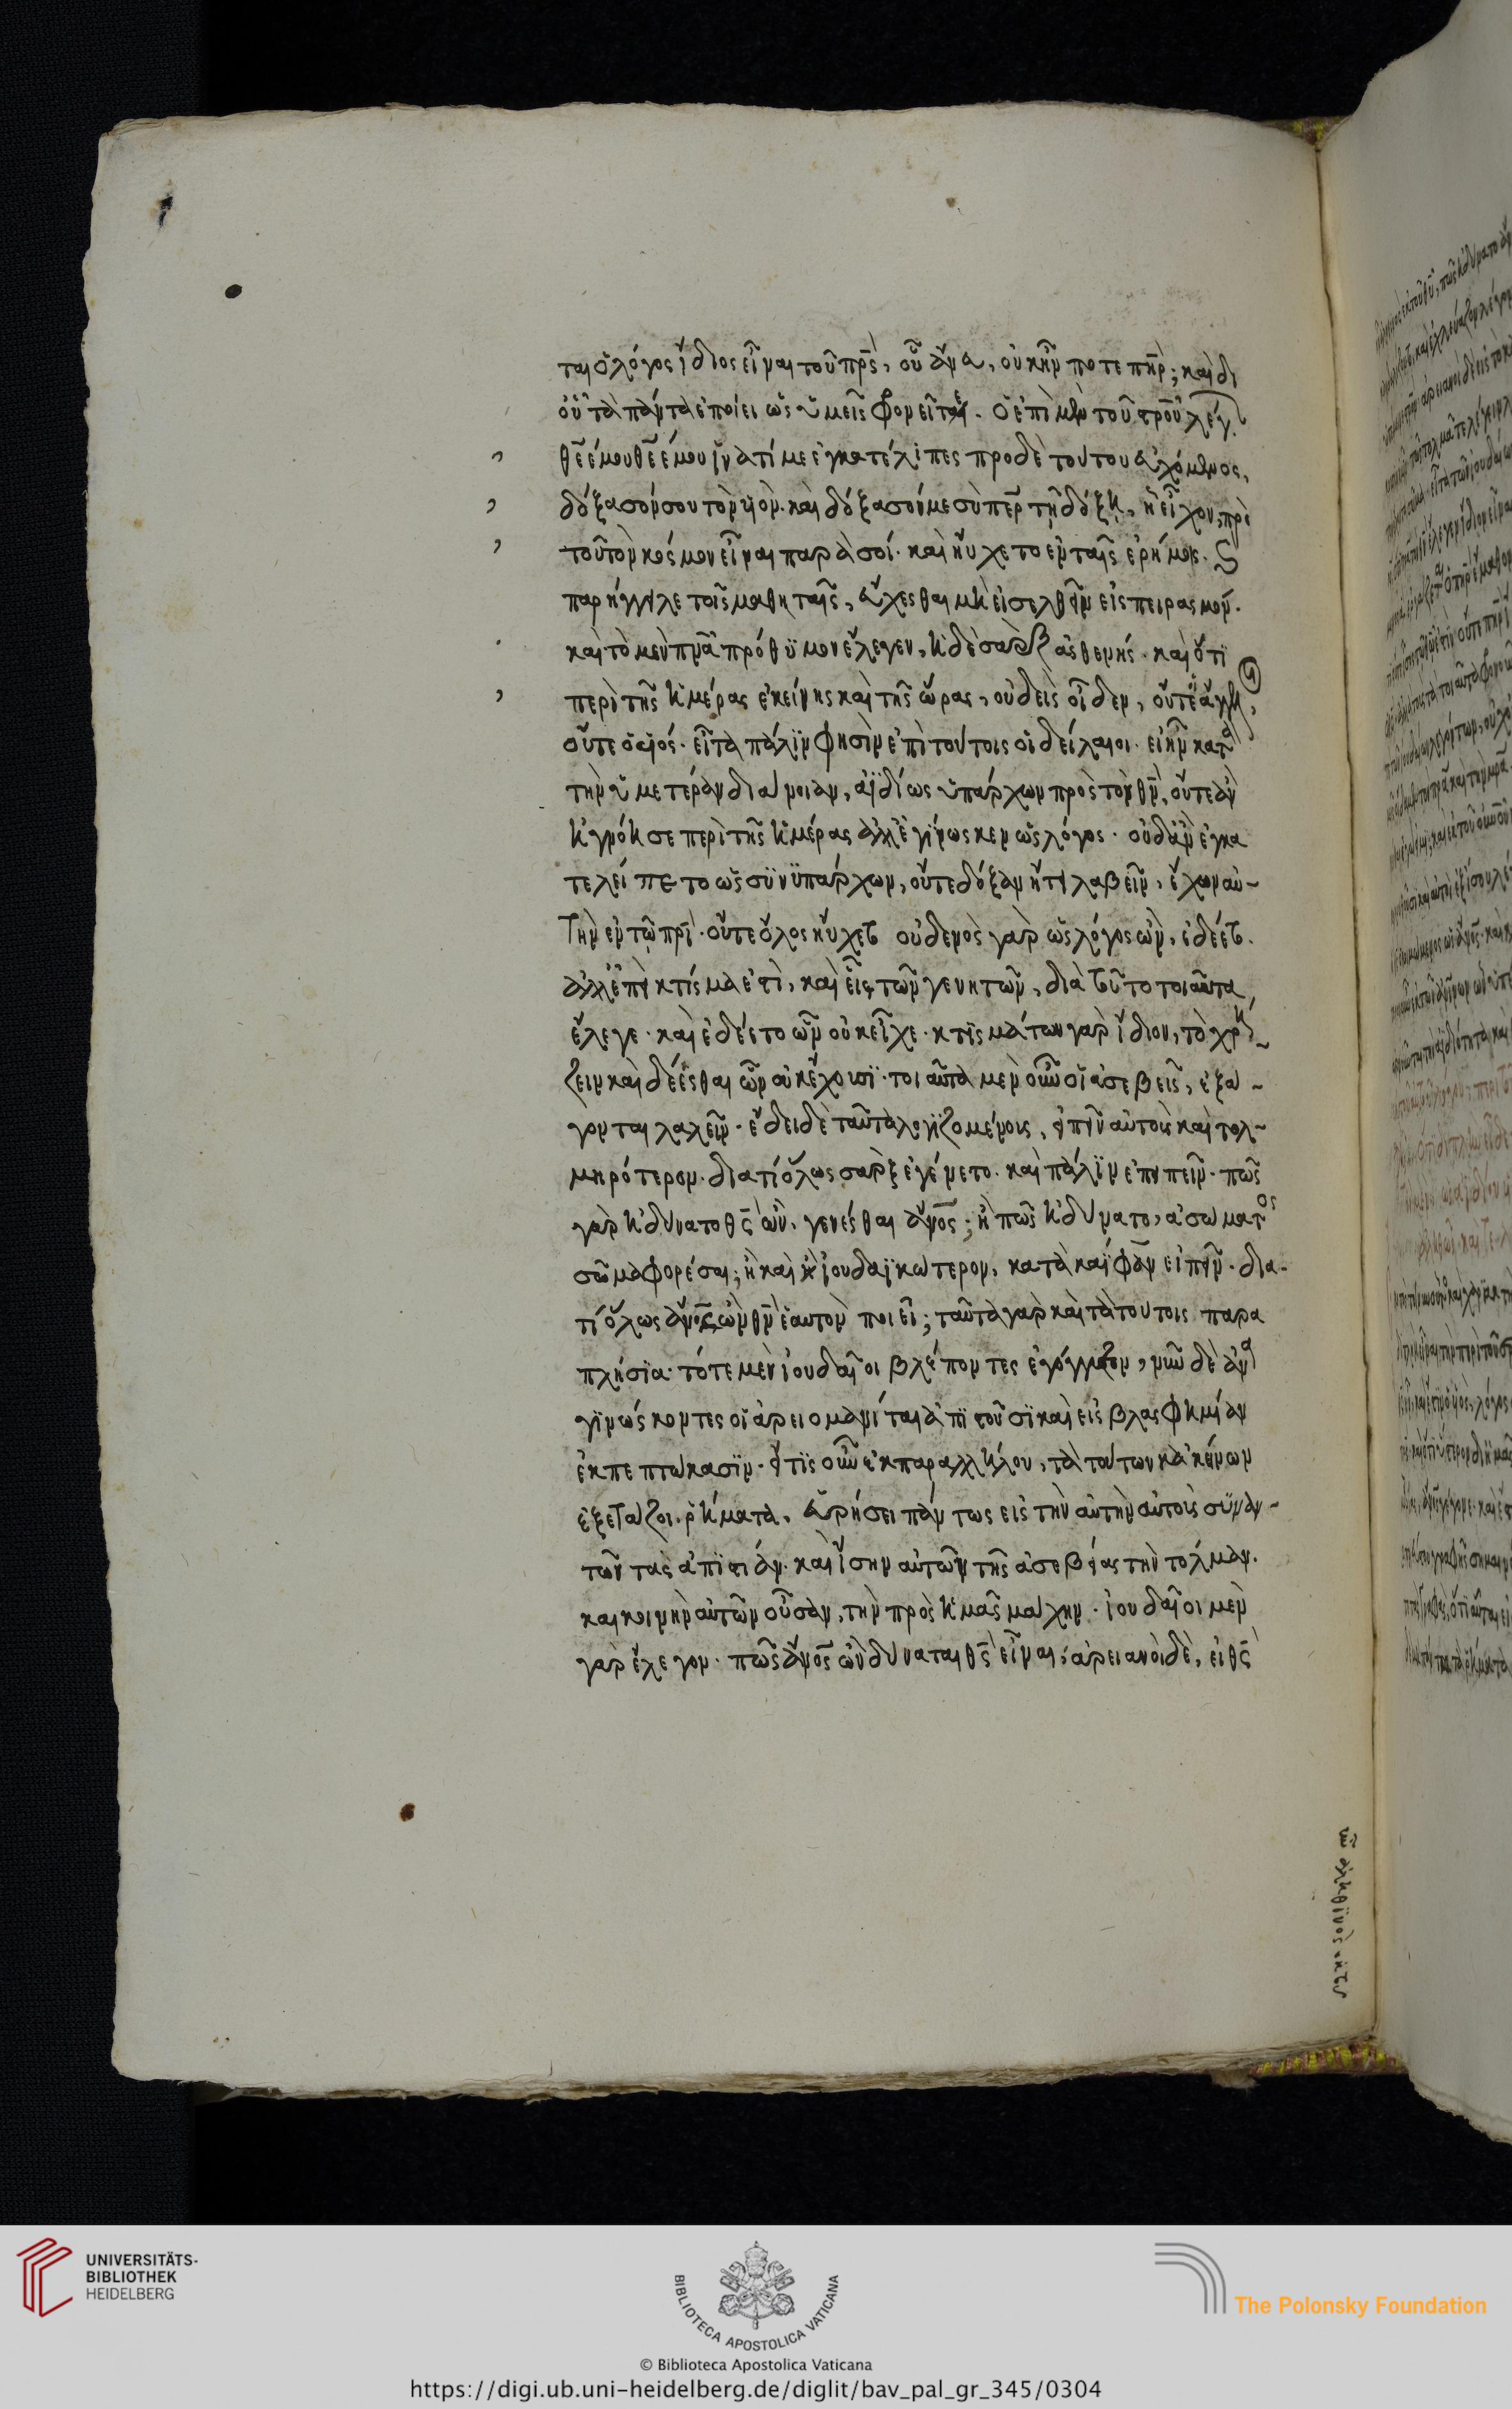 ται ὁ λόγος ἴδιος εἶναι τοῦ πρς̅, οὗ ἄνευ, οὐκ ἦν ποτε πηρ̅; καὶ δι
οὗ τὰ πάντα ἐποίει ὡς ὑμεῖς φρονεῖτε. ὁ ἐπὶ μὲν τοῦ σρ̅οῦ λέγ
θε̅ε μου θε̅ε μου ἵνα τί με ἐγκατέλιπες προ δὲ τούτου εὐχόμενος,
δόξασόν σου τὸν υἱόν. καὶ δόξασόν με σὺ περ̅ τῇ δόξῃ, ᾗ εἶχον, πρὸ
τοῦ τὸν κόσμον εἶναι παρὰ σοί. καὶ ηὔχετο ἐν ταῖς ἐρήμοις. Ϛ
παρήγγειλε τοῖς μαθηταῖς, εὔχεσθαι μὴ εἰσελθεῖν εἰς πειρασμόν.
καὶ τὸ μὲν πνα̅ πρόθυμον ἔλεγεν, ἡ δὲ σὰρξ ἀσθενής. καὶ ὅτι
περὶ τῆς ἡμέρας ἐκείνης καὶ τῆς ὥρας, οὐδεὶς οἶδεν, οὔτε οἱ ἄγγελ,
οὔτε ὁ υἱός. εἶτα πάλιν φησὶν ἐπὶ τούτοις οἱ δείλαιοι. εἰ ἦν κατὰ
τὴν ὑμετέραν διάνοιαν, ἀϊδίως ὑπάρχων πρὸς τὸν θν̅, οὔτε ἂν
ἠγνόησε περὶ τῆς ἡμέρας ἀλλ' ἐγίνωσκεν ὡς λόγος. οὐδ' ἂν ἐγκα
τελείπετο ὡς συνϋπάρχων, οὔτε δόξαν ᾔτει λαβεῖν, ἔχων αὐ-
τὴν ἐν τῷ πρι̅. οὔτε ὅλως ηὔχετο οὐδενὸς γὰρ ὡς λόγος ὢν, ἐδέετο.
ἀλλ' ἐπεὶ κτίσμα ἐστὶ, καὶ εἷς τῶν γενητῶν, διὰ τοῦτο τοιαῦτα,
ἔλεγε. καὶ ἐδέετο ὧν οὐκ εἶχε. κτισμάτων γὰρ ἴδιον, τὸ χρή-
ζειν καὶ δέεσθαι ὧν οὐκ ἔχουσϊ. τοιαῦτα μὲν οὖν οἱ ἀσεβεῖς, ἐξά-
γονται λαλεῖν. ἔδει δὲ ταῦτα λογιζομένοις, εἰπεῖν αὐτοὺς καὶ τολ-
μηρότερον. διατί ὅλως σὰρξ ἐγένετο. καὶ πάλιν ἐπειπεῖν. πῶς
γὰρ ἠδύνατο θς̅ ὢν, γενέσθαι ἄνος̅; ἢ πῶς ἠδύνατο, ἀσώματος
σῶμα φορέσαι; ἢ καὶ ἰουδαϊκώτερον, κατὰ καϊφαν εἰπεῖν. δια-
τί ὅλως ἄνος̅ ὢν θν̅ ἑαυτὸν ποιεῖ; ταῦτα γὰρ καὶ τὰ τούτοις παρα
πλήσϊα. τότε μὲν ἰουδαῖοι βλέποντες ἐγόγγυζον, νῦν δὲ ἀνα
γινώσκοντες οἱ ἀρειομανῖται ἀπιστοῦσϊ καὶ εἰς βλασφημίαν
ἐκπεπτώκασϊν. εἴ τις οὖν ἐκ παραλλήλου, τὰ τούτων κἀκείνων
ἐξετάζοι ῥήματα, εὑρήσει πάντως εἰς τὴν αὐτὴν αὐτοὺς συναν-
τῶντας ἀπιστίαν. καὶ ἴσην αὐτῶν τῆς ἀσεβείας τὴν τόλμαν.
καὶ κοινὴν αὐτῶν οὖσαν, τὴν πρὸς ἡμᾶς μάχην. ἰουδαῖοι μὲν
γὰρ ἔλεγον. πῶς ἄνος̅ ὢν δύναται θς̅ εἶναι; ἀρειανοὶ δὲ, εἰ θς̅
UNIVERSITÄTS-
BIBLIOTHEK
HEIDELBERG
BIBLIOTECA APOSTOLICA VATICANA
The Polonsky Foundation
© Biblioteca Apostolica Vaticana
https://digi.ub.uni-heidelberg.de/diglit/bav_pal_gr_345/0304